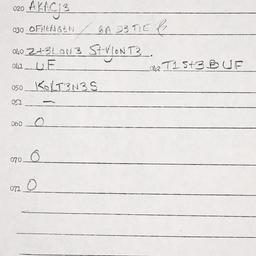 020 AKACJ3
030 OFHENGEN / BA D3TIE
040 Z+3LON3 S+VJONT3.
041 UF 042 T1S+3BUF
050 KOLT3N3S
051 —
060 O
070 O
071 O